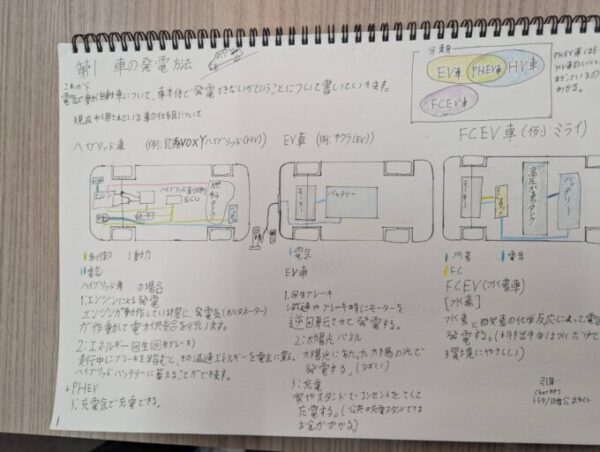 第1 車の発電方法
これから
電気で動く自動車について、車本体で発電できないかということについて書いていきます。
現在利用されている車の仕組について
分類
EV車
PHEV車
HV車
FCEV車
PHEV車はEV
HV車のいい
わかる。
ハイブリッド車 (例:VOXYハイブリッド(HV))
ECU
燃料タンク
制御
動力
電気
ハイブリッド車 の場合
1:エンジンによる発電
エンジンが動作している時に、発電気(オルタネーター)
が作動して電力供給を行います。
2:エネルギー回生(回生ブレーキ)
走行中にブレーキを踏むと、その減速エネルギーを電気に変え、
ハイブリッドバッテリーに蓄えることができます。
+PHEV
3:充電気で充電できる。
EV車 (例:サクラ(EV))
モーター
バッテリー
電気
EV車
1:回生ブレーキ
減速やブレーキ時にモーターを
逆回転させて発電する。
2:太陽光パネル
太陽光にあたった太陽の光で
発電する。
3:充電
家やスタンドでコンセントをさして
充電する。(公共の充電スタンドでは
お金がかかる)
FCEV車(例:ミライ)
モーター
高圧水素タンク
バッテリー
水素
電気
FC
FCEV(水素車)
[水素]
水素と酸素の化学反応によって電気
発電する。(排出ガスは水だけで
環境にやさしい)
引用:
ChatGPT
トヨタ/日産公式サイト
1